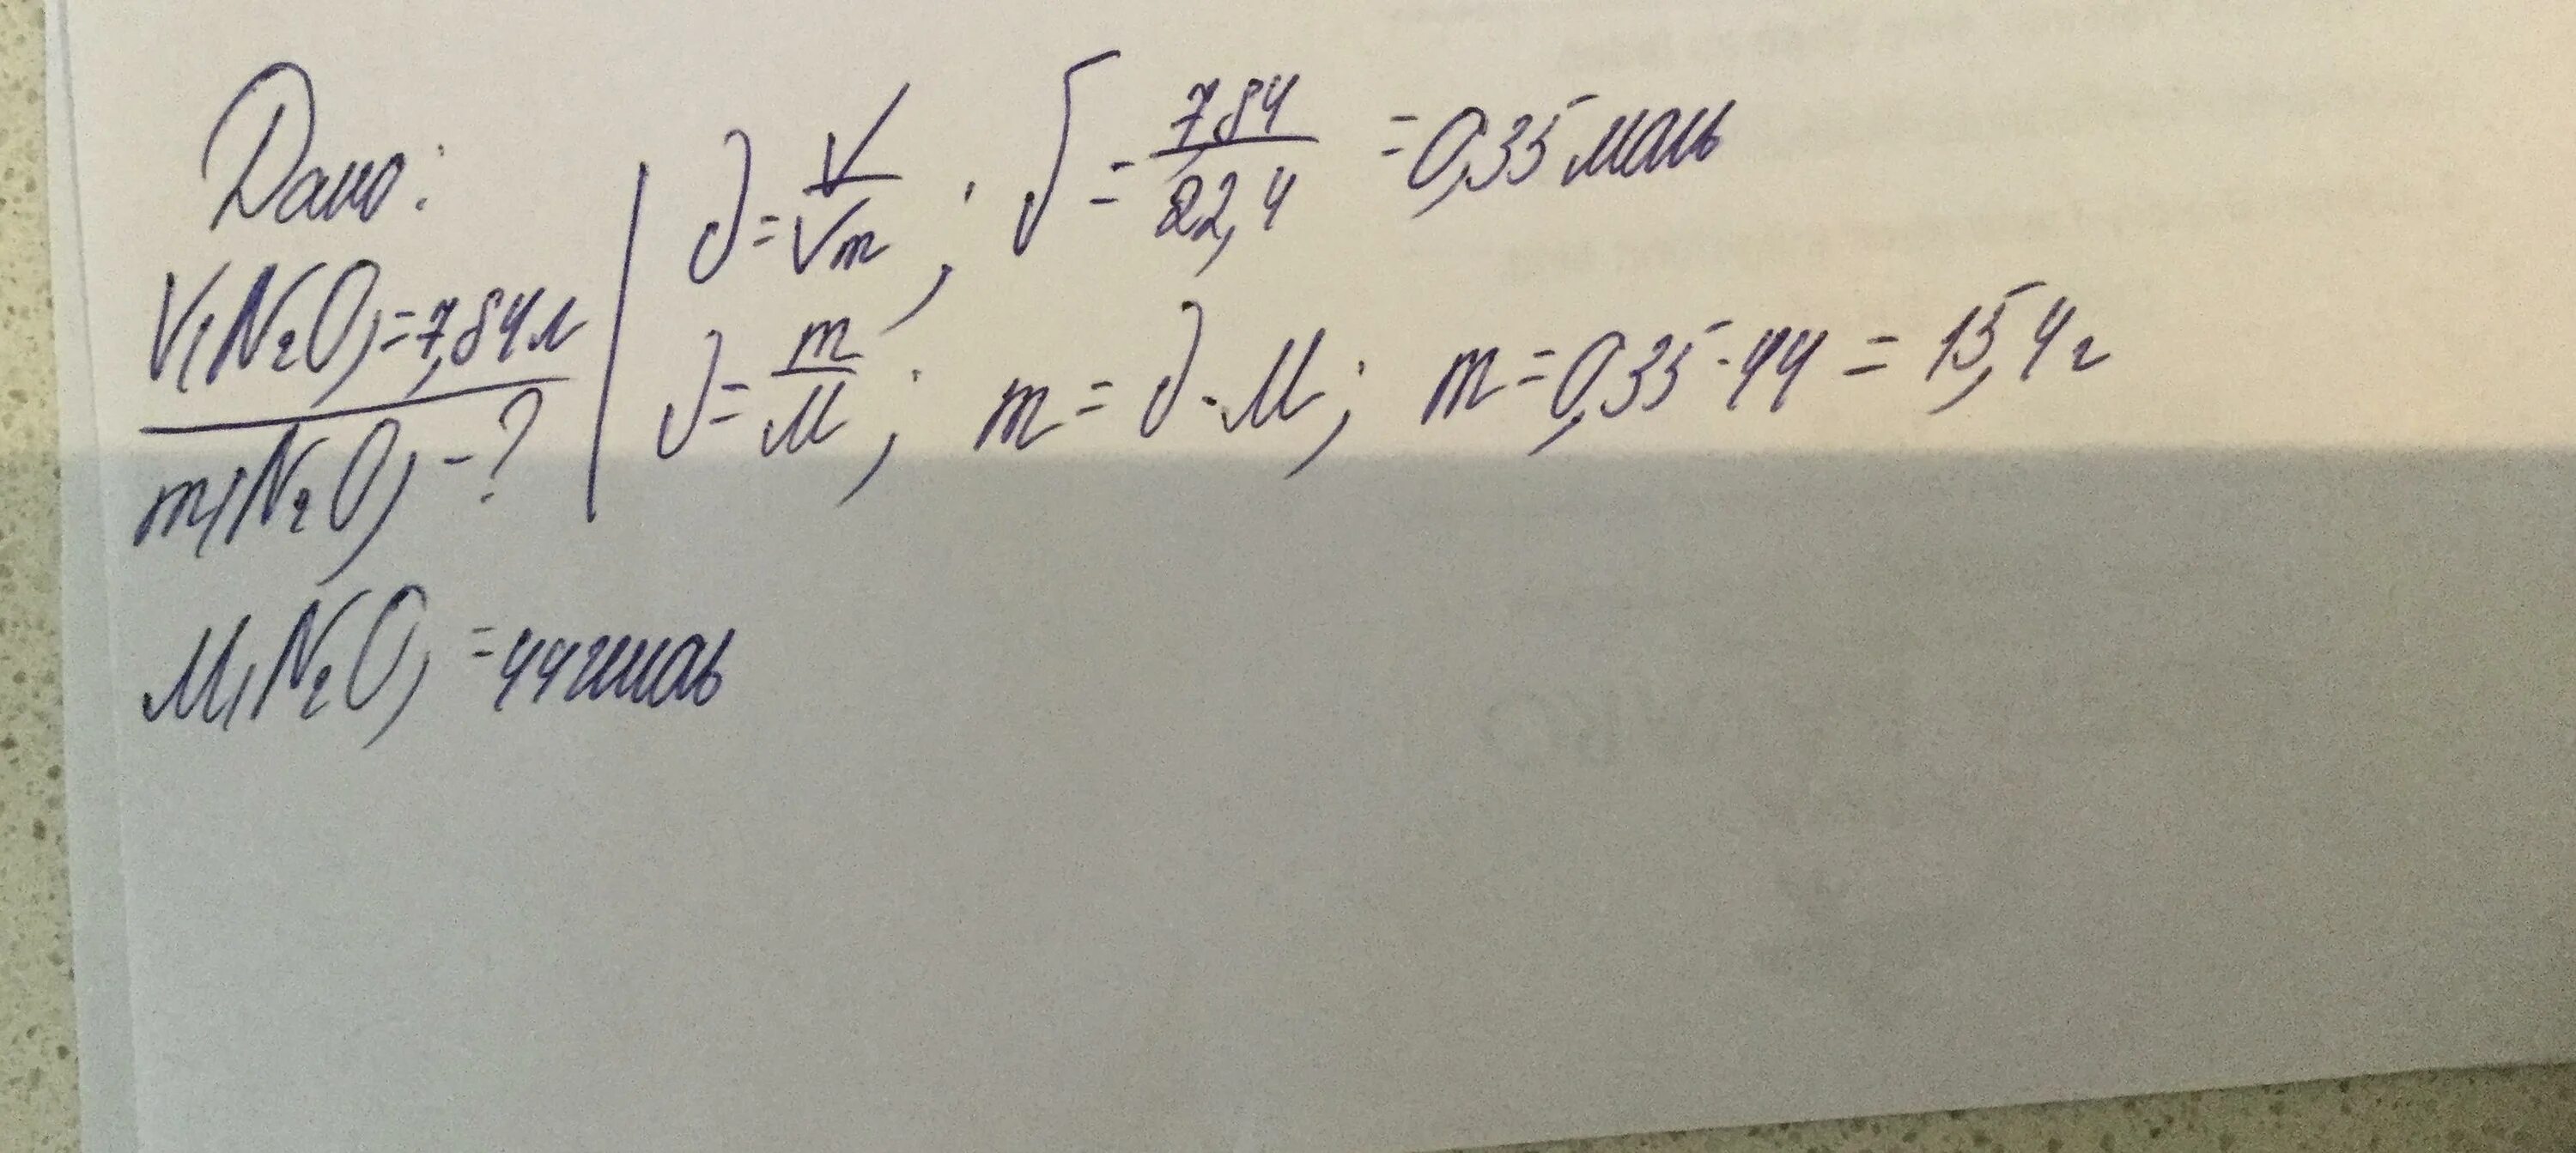 Дано:
V(N₂O)=7,84л
m(N₂O)-?
M(N₂O)=44г/моль
ν=V/Vm; ν=7,84/22,4=0,35моль
ν=m/M; m=ν·M; m=0,35·44=15,4г